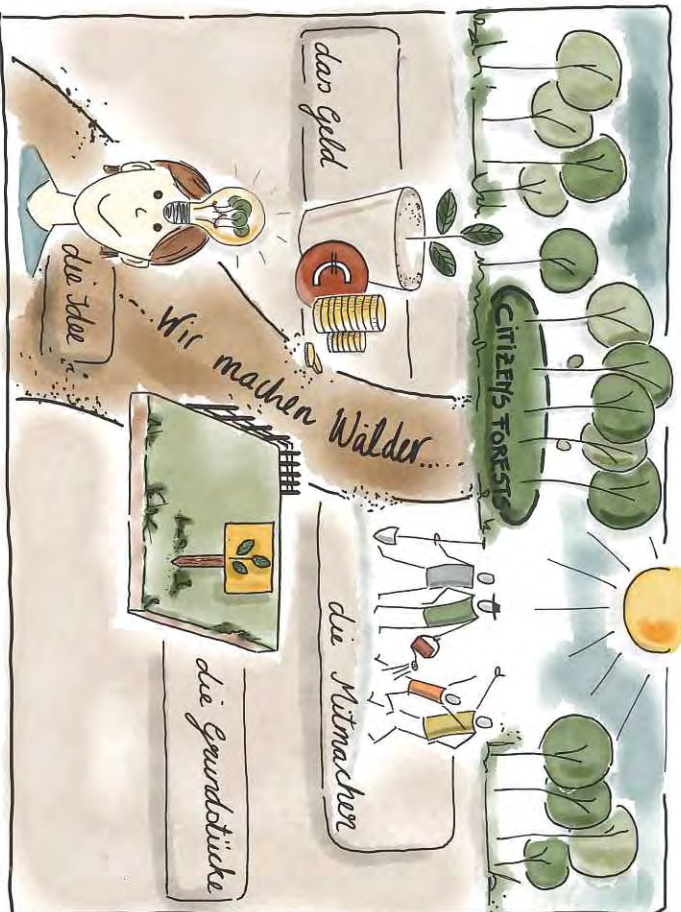 CITIZENS FORESTS
das Geld
die Mitmacher
Wir machen Wälder...
die Idee
die Grundstücke